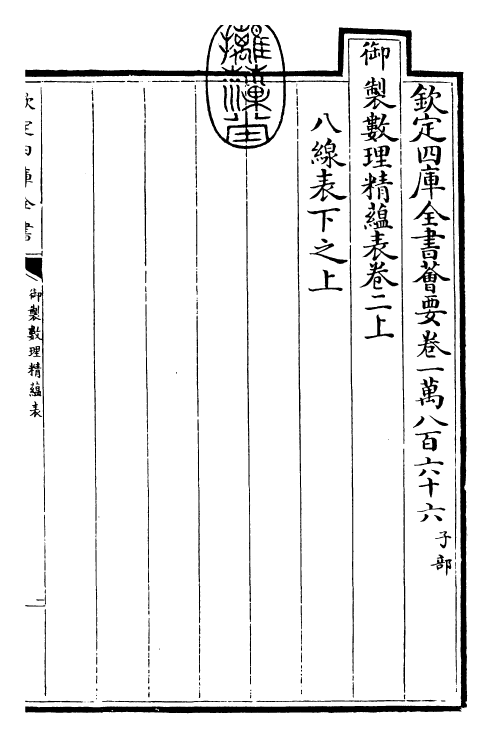 欽定四庫全書薈要卷一萬八百六十六 子部
御製數理精蘊表卷二上
八線表下之上
摛藻堂
欽定四庫全書
御製數理精蘊表